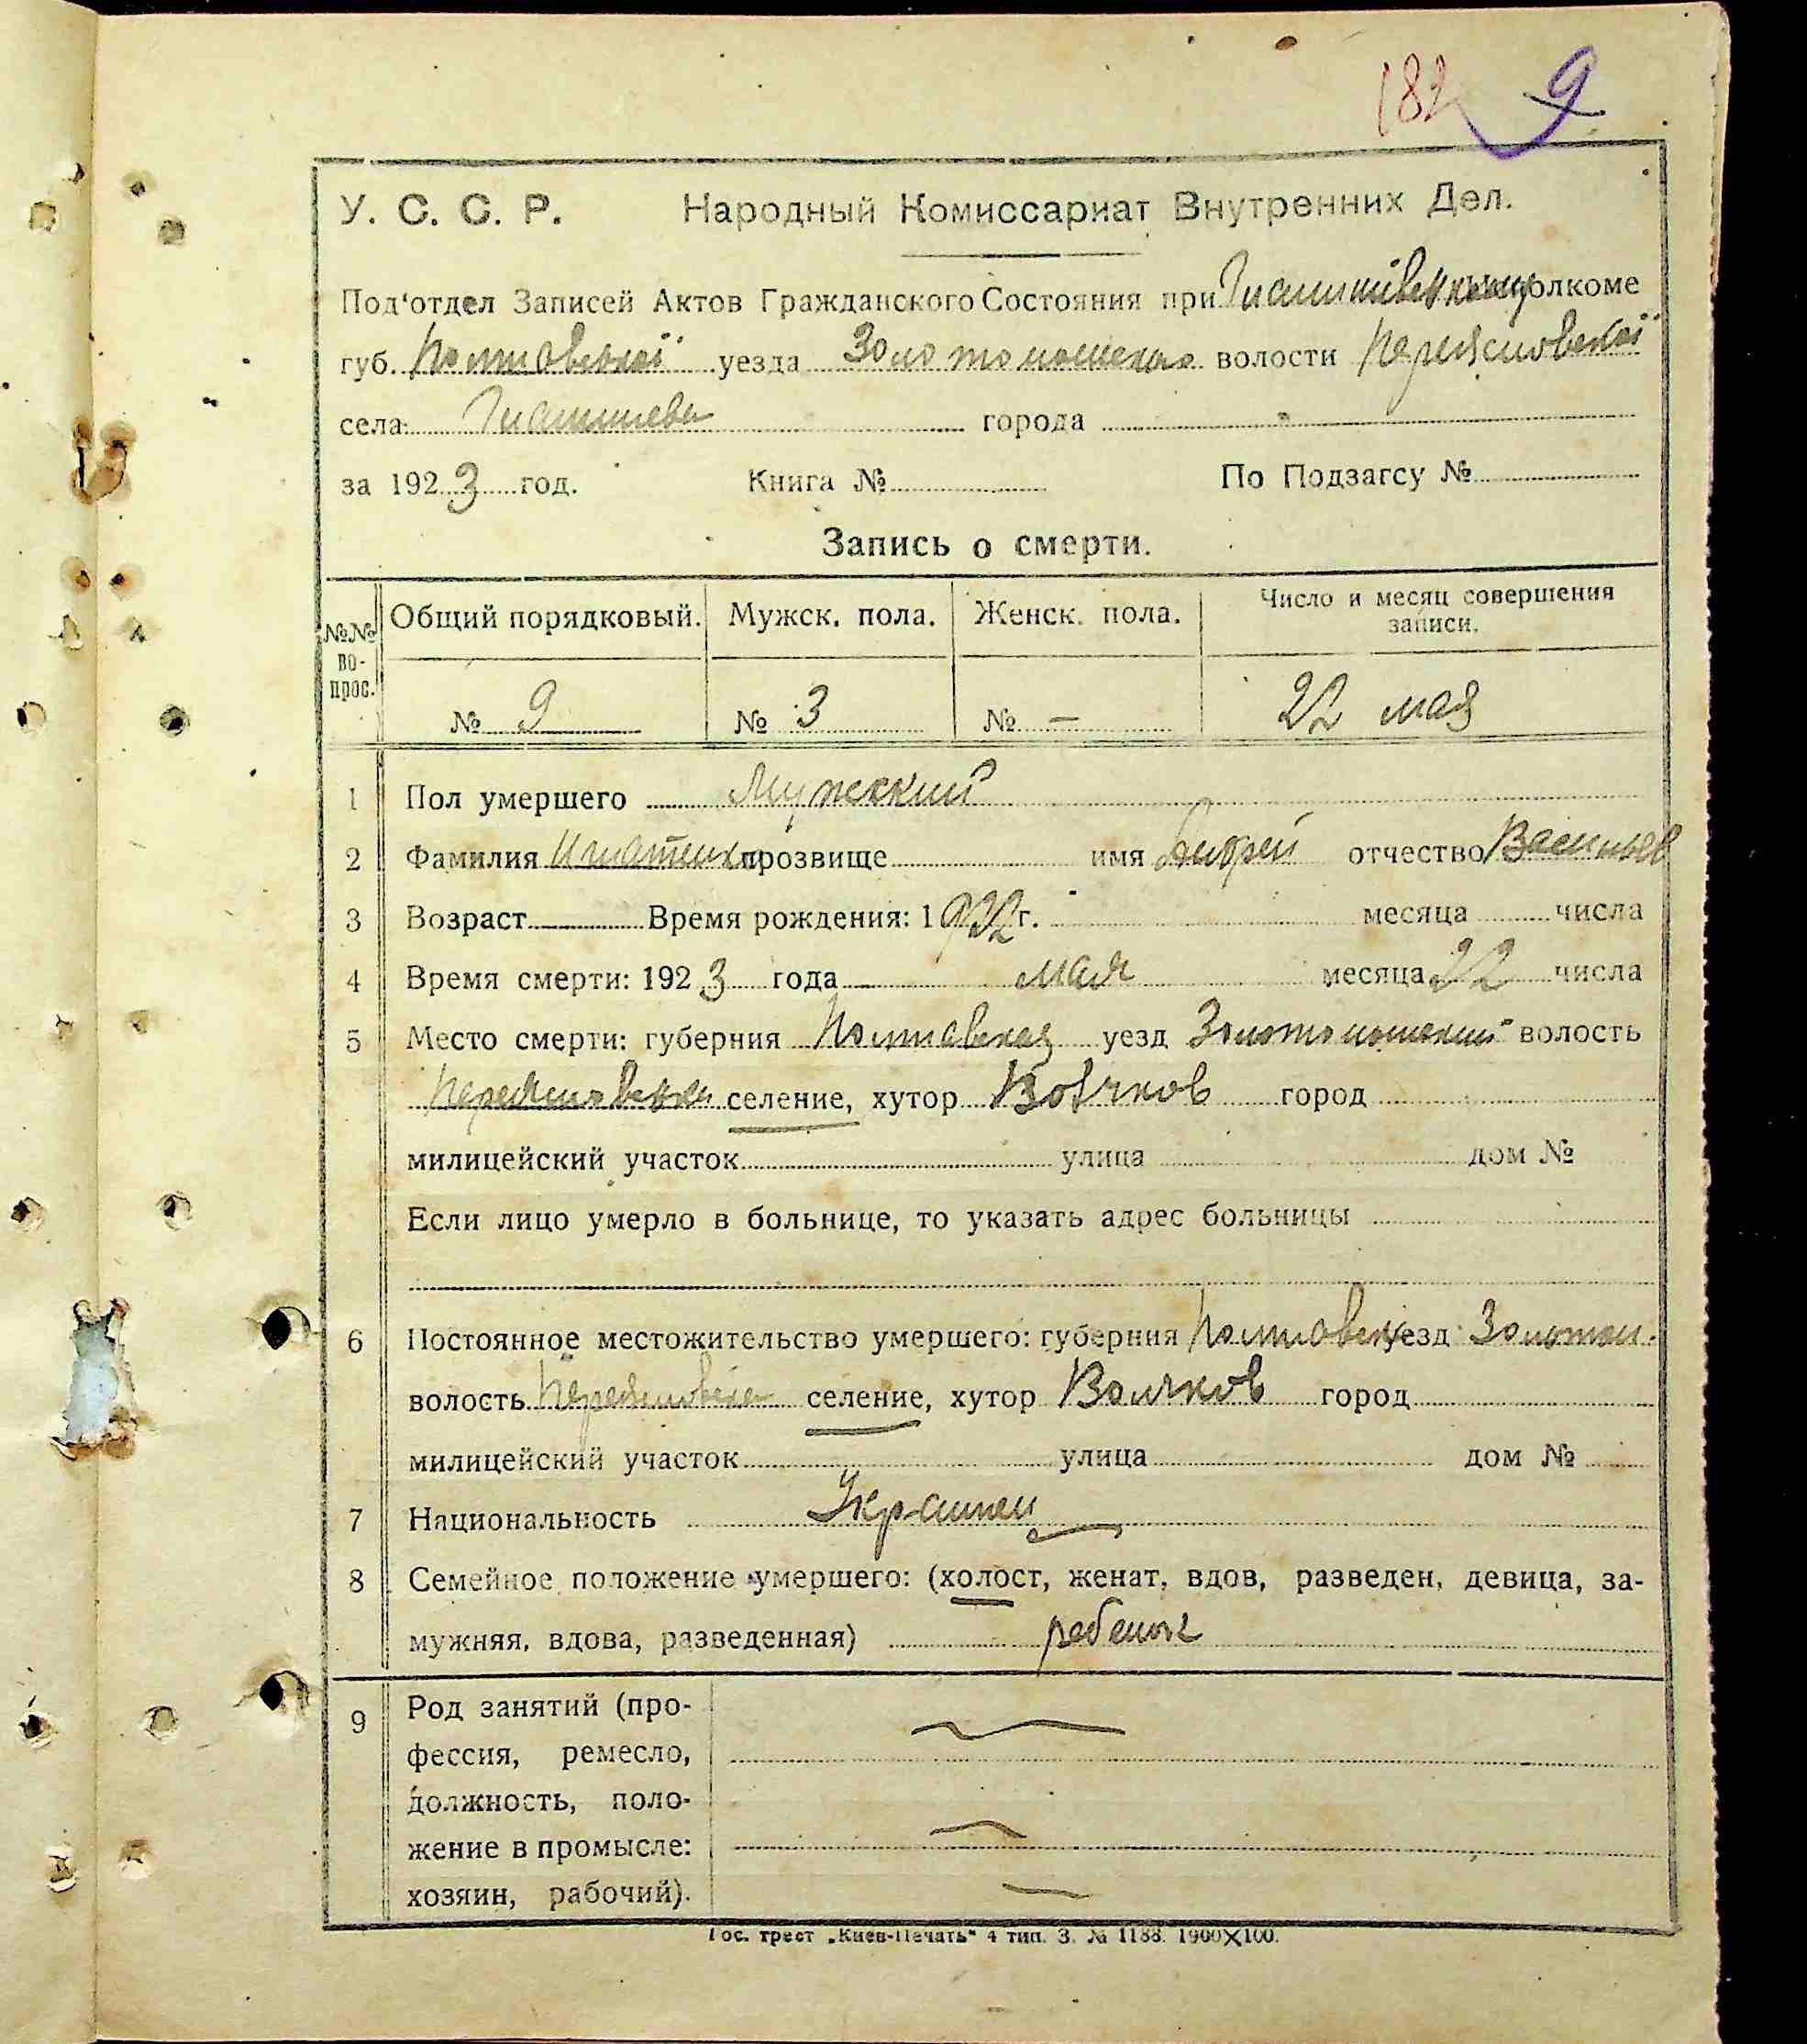 182 9
У. С. С. Р. Народный Комиссариат Внутренних Дел.
Под'отдел Записей Актов Гражданского Состояния при волкоме
губ. Полтавской уезда Золотоношского волости Переяславской
села Гланишева города
за 1923 год. Книга № По Подзагсу №
Запись о смерти.
№№ во-прос. Общий порядковый. Мужск. пола. Женск. пола. Число и месяц совершения записи.
№ 9 № 3 № — 22 мая
1 Пол умершего Мужский
2 Фамилия Игнатенко прозвище имя Андрей отчество Васильев
3 Возраст Время рождения: 1922 г. месяца числа
4 Время смерти: 1923 года мая месяца 22 числа
5 Место смерти: губерния Полтавская уезд Золотоношский волость
селение, хутор Вовчков город
милицейский участок улица дом №
Если лицо умерло в больнице, то указать адрес больницы
6 Постоянное местожительство умершего: губерния Полтавск уезд Золотон.
волость селение, хутор Волчков город
милицейский участок улица дом №
7 Национальность Украинец
8 Семейное положение умершего: (холост, женат, вдов, разведен, девица, за-
мужняя, вдова, разведенная) ребенок
9 Род занятий (про-
фессия, ремесло,
должность, поло-
жение в промысле:
хозяин, рабочий).
Гос. трест „Киев-Печать" 4 тип. З. № 1188. 1900×100.